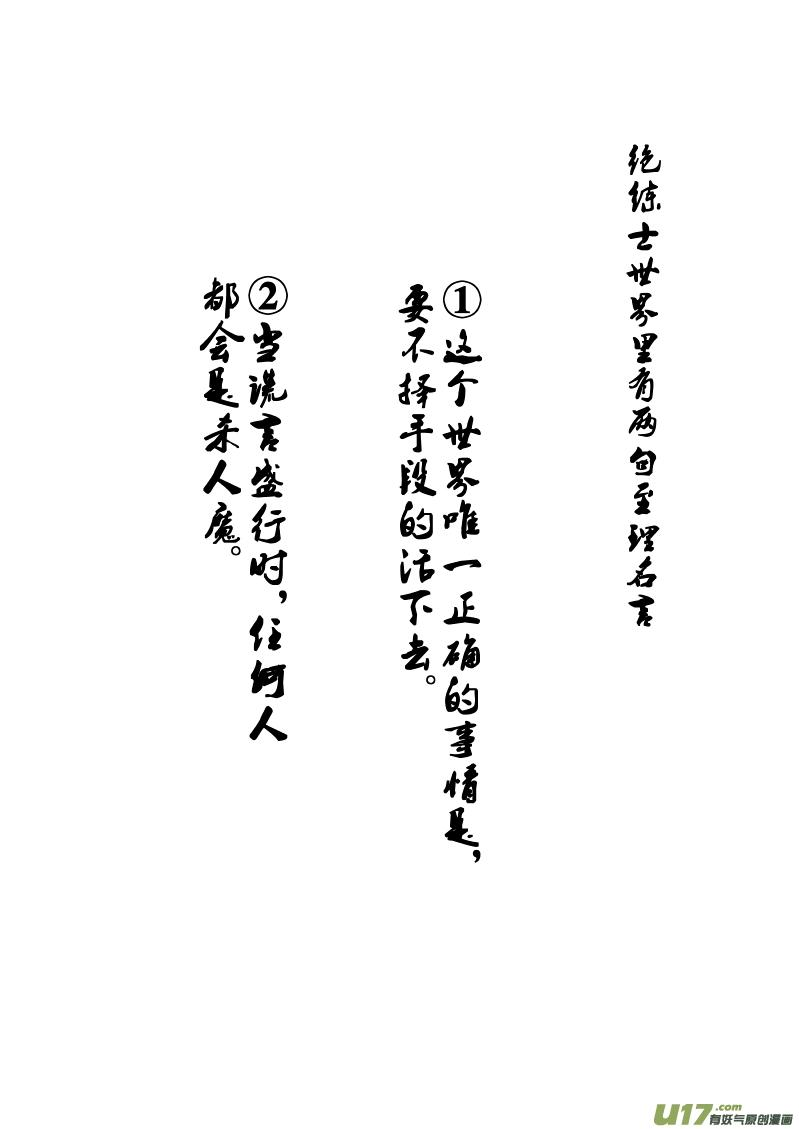 绝练士世界里有两句至理名言
①这个世界唯一正确的事情是，
要不择手段的活下去。
②当谎言盛行时，任何人
都会是杀人魔。
U17.com
有妖气原创漫画